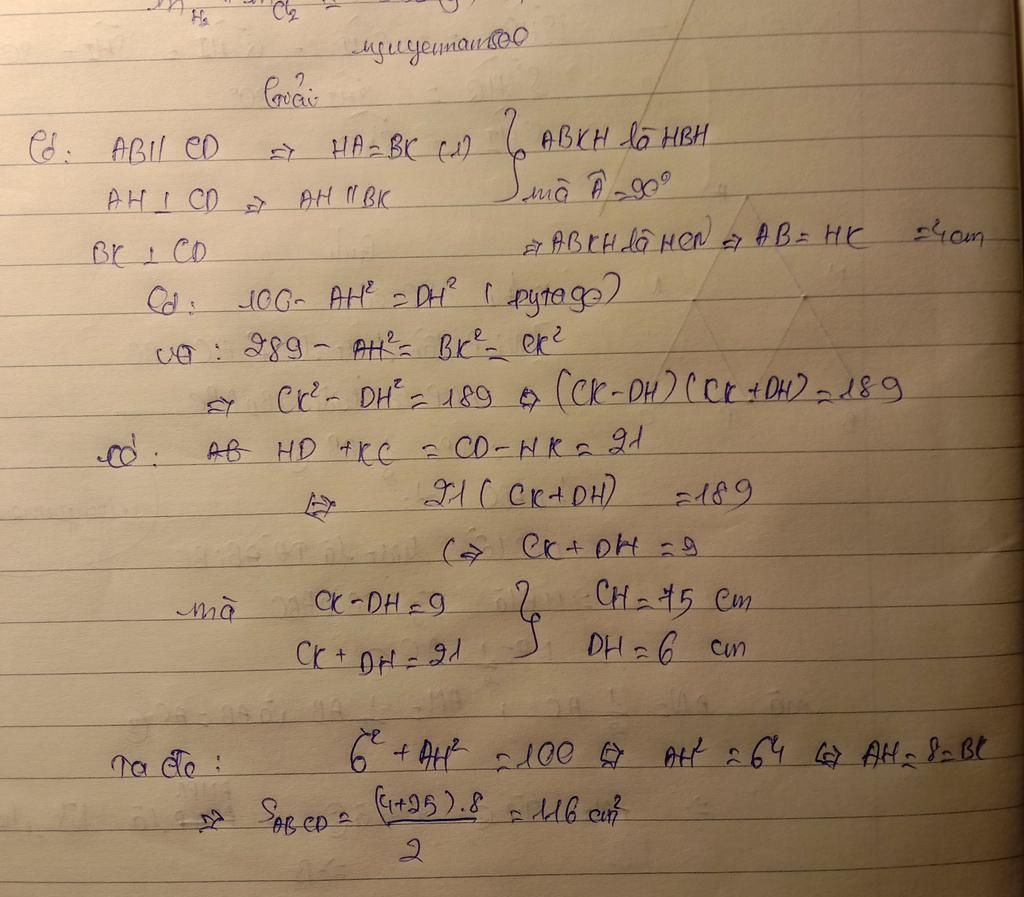 m H₂ m Cl₂ =
nguyentam500
Giải
Có: AB // CD ⇒ HA = BK (1) } ABKH là HBH
AH ⊥ CD ⇒ AH // BK mà Â = 90°
BK ⊥ CD ⇒ ABKH là HCN ⇒ AB = HK = 4cm
Có: 100 - AH² = DH² (pytago)
và: 289 - AH² = BK² = CK²
⇒ CK² - DH² = 189 ⇔ (CK - DH)(CK + DH) = 189
có: AB HD + KC = CD - HK = 21
⇔ 21 (CK + DH) = 189
⇔ CK + DH = 9
mà CK - DH = 9 } CH = 15 cm
CK + DH = 21 DH = 6 cm
Ta có: 6² + AH² = 100 ⇔ AH² = 64 ⇔ AH = 8 = BK
⇒ S ABCD = (4+25).8 / 2 = 116 cm²